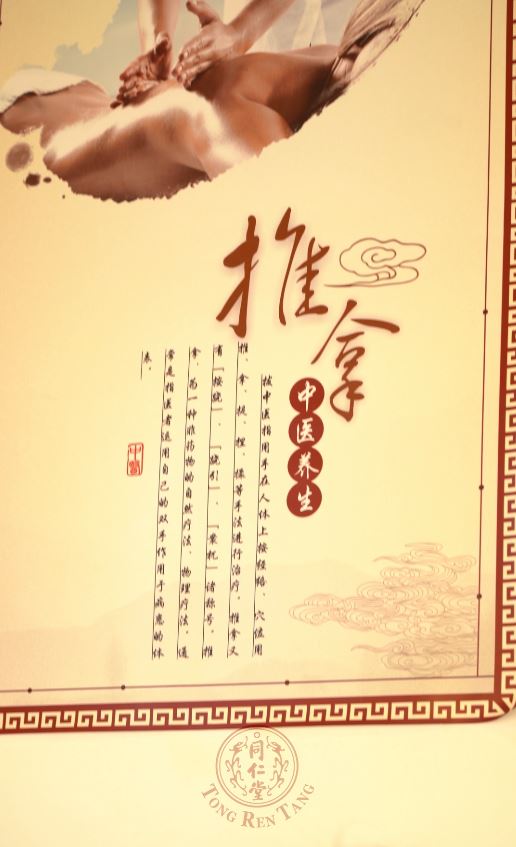 推拿
中医养生
拔中医指用手在人体上按经络、穴位用
推、拿、提、捏、揉等手法进行治疗。推拿又
有「按跷」、「跷引」、「案杌」诸称号。推
拿，为一种非药物的自然疗法、物理疗法。通
常是指医者运用自己的双手作用于病患的体
表，
中醫
同仁堂
TONG REN TANG